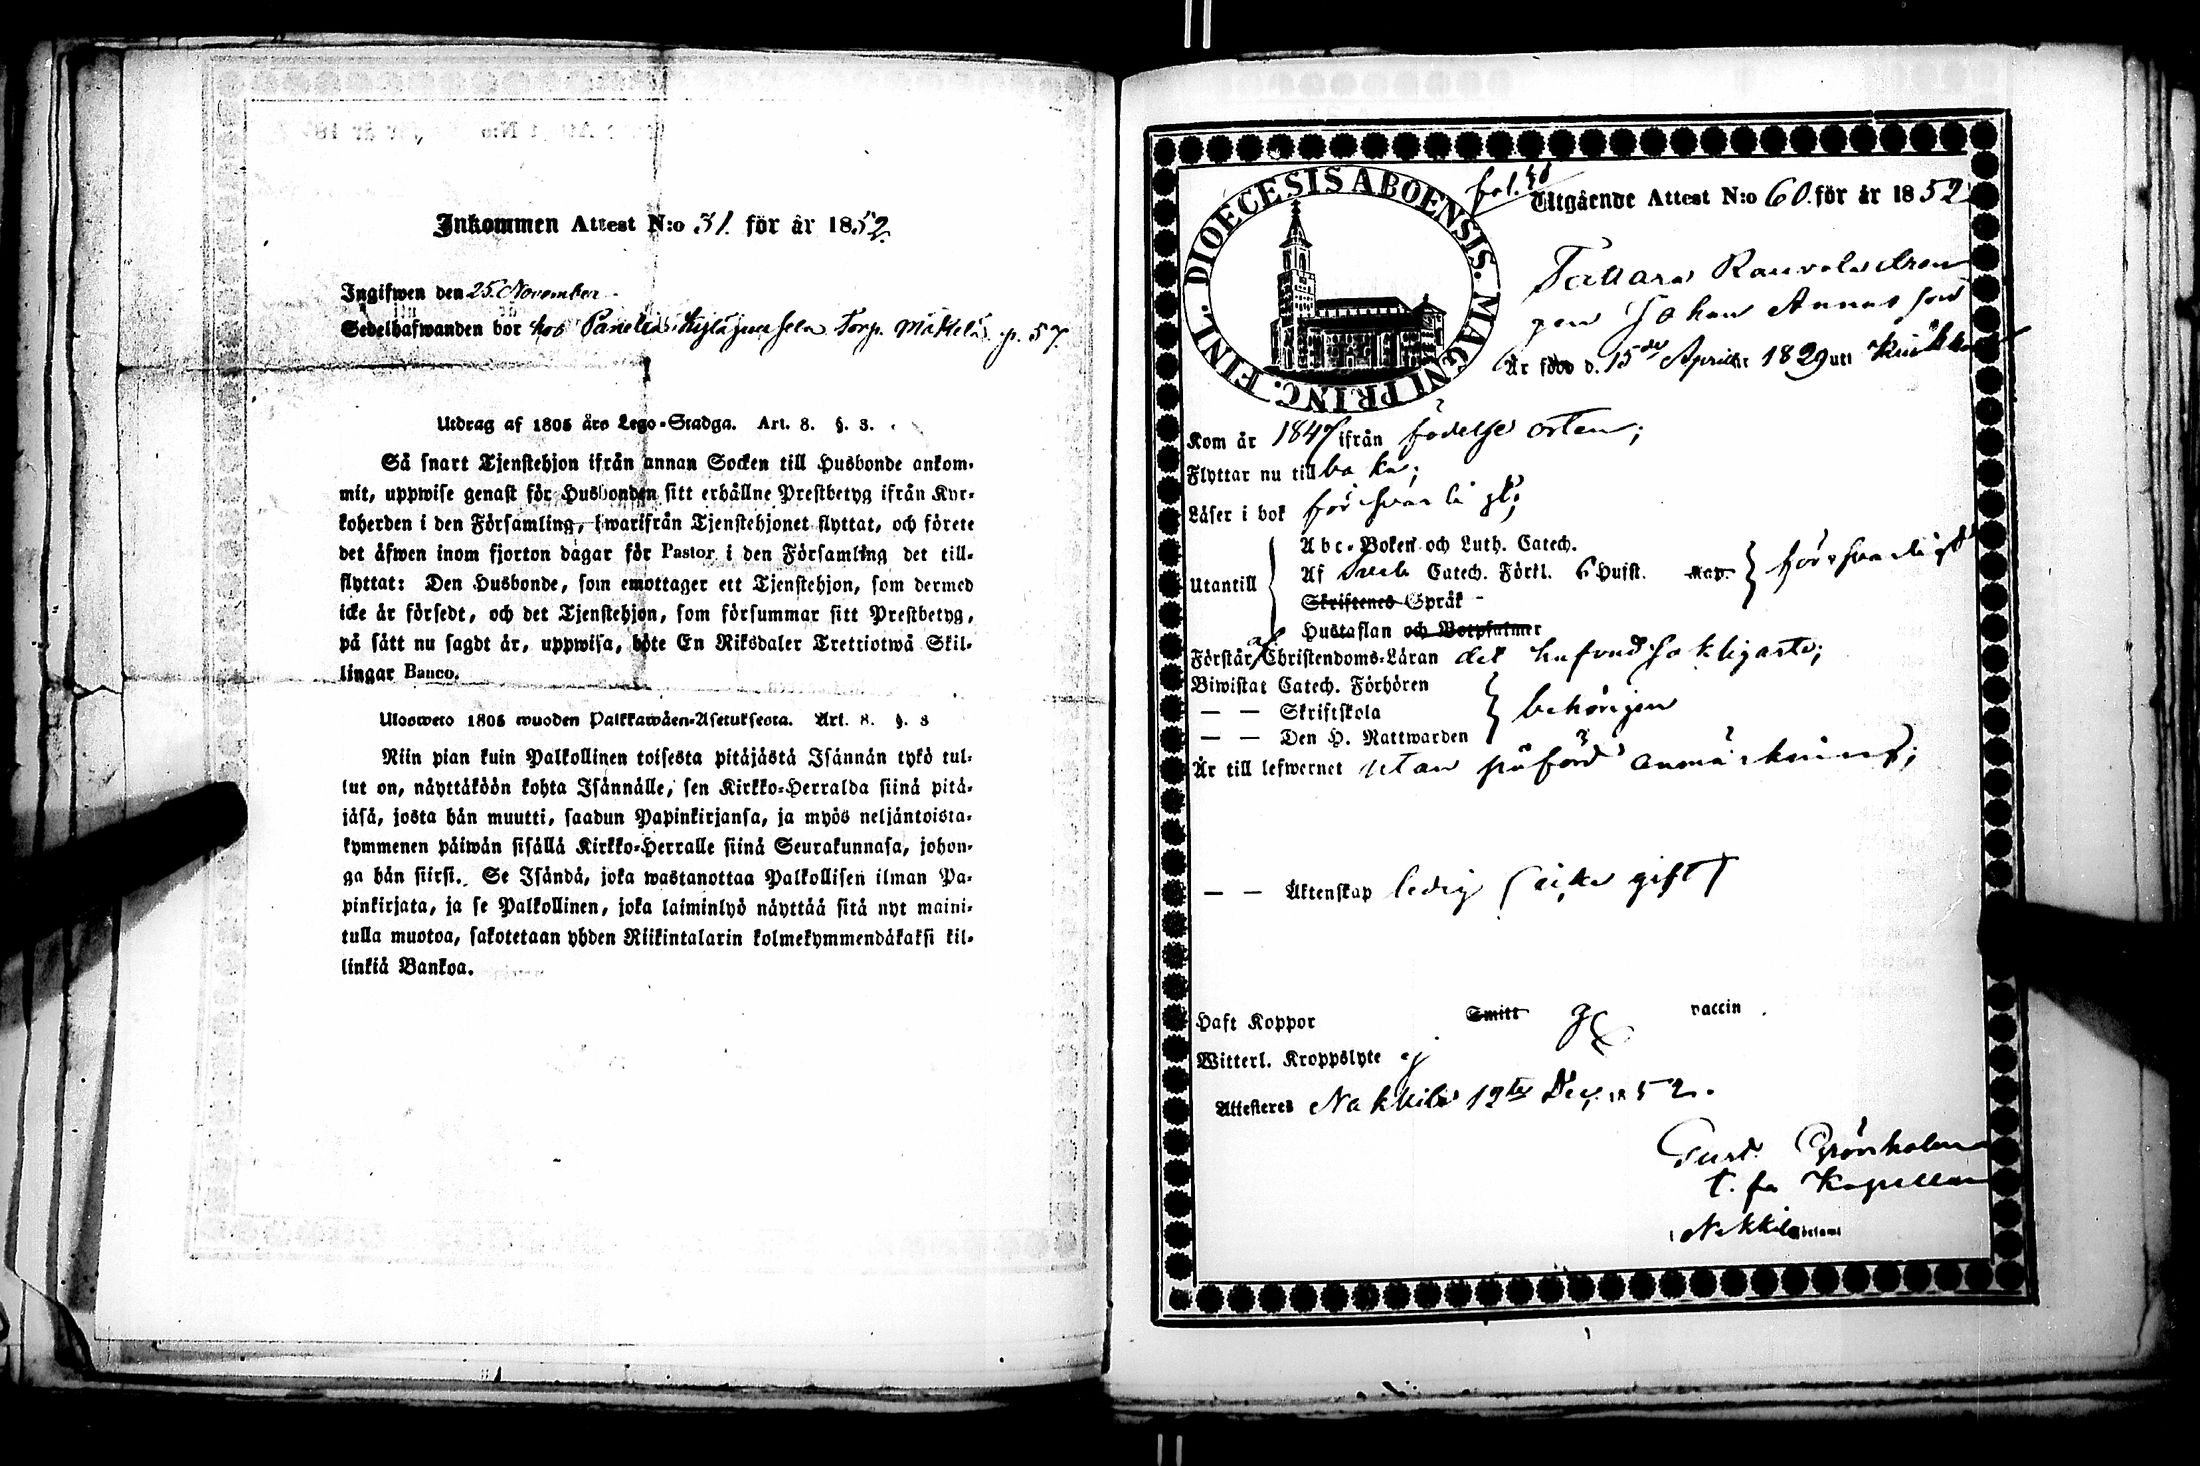 Inkommen Attest N:o 31. för år 1852.
Ingifwen den 25. November
Sedelhafwanden bor hos Panelia Torp. Mäkelä p. 57.
Utdrag af 1805 års Lego-Stadga. Art. 8. §. 3.
Så snart Tjenstehjon ifrån annan Socken till Husbonde ankom-
mit, uppwise genast för Husbonden sitt erhållne Prestbetyg ifrån Kyr-
koherden i den Församling, hwarifrån Tjenstehjonet flyttat, och förete
det äfwen inom fjorton dagar för Pastor i den Församling det till-
flyttat: Den Husbonde, som emottager ett Tjenstehjon, som dermed
icke är försedt, och det Tjenstehjon, som försummar sitt Prestbetyg,
på sätt nu sagdt är, uppwisa, böte En Riksdaler Trettiotwå Skil-
lingar Banco.
Ulosweto 1805 wuoden Palkkawäen-Asetuksesta. Art. 8. §. 3
Niin pian kuin Palkollinen toisesta pitäjästä Isännän tykö tul-
lut on, näyttäköön kohta Isännälle, sen Kirkko-Herralda siinä pitä-
jäsä, josta hän muutti, saadun Papinkirjansa, ja myös neljäntoista-
kymmenen päiwän sisällä Kirkko-Herralle siinä Seurakunnasa, johon-
ga hän siirsi. Se Isändä, joka wastanottaa Palkollisen ilman Pa-
pinkirjata, ja se Palkollinen, joka laiminlyö näyttää sitä nyt maini-
tulla muotoa, sakotetaan yhden Riikintalarin kolmekymmendäkaksi kil-
linkiä Bankoa.
DIOECESIS ABOENSIS. MAGNI PRINC. FINL.
fol. 48
Utgående Attest N:o 60. för år 1852
Johan Annas son
Är född d. 15de April år 1829 uti
Kom år 1847 ifrån födelse orten;
Flyttar nu tillbaka;
Läser i bok försvarligt;
Abc-Boken och Luth. Catech.
Utantill Af Sveb. Catech. Förkl. 6 Hufst. Kap. försvarligt
Skriftenes Språk
Hustaflan och Botpsalmer
Förstår af Christendoms-Läran det hufvudsakligaste;
Biwistat Catech. Förhören
— — Skriftskola behörigen
— — Den H. Nattwarden
Är till lefwernet utan påförd anmärkning;
— — Äktenskap ledig (icke gift)
Haft Koppor Smitt vaccin
Witterl. Kroppslyte ej
Attesteras Nakkila 12te Dec. 1852.
Gust. Grönholm
t. f. Kapellan
Nakkila